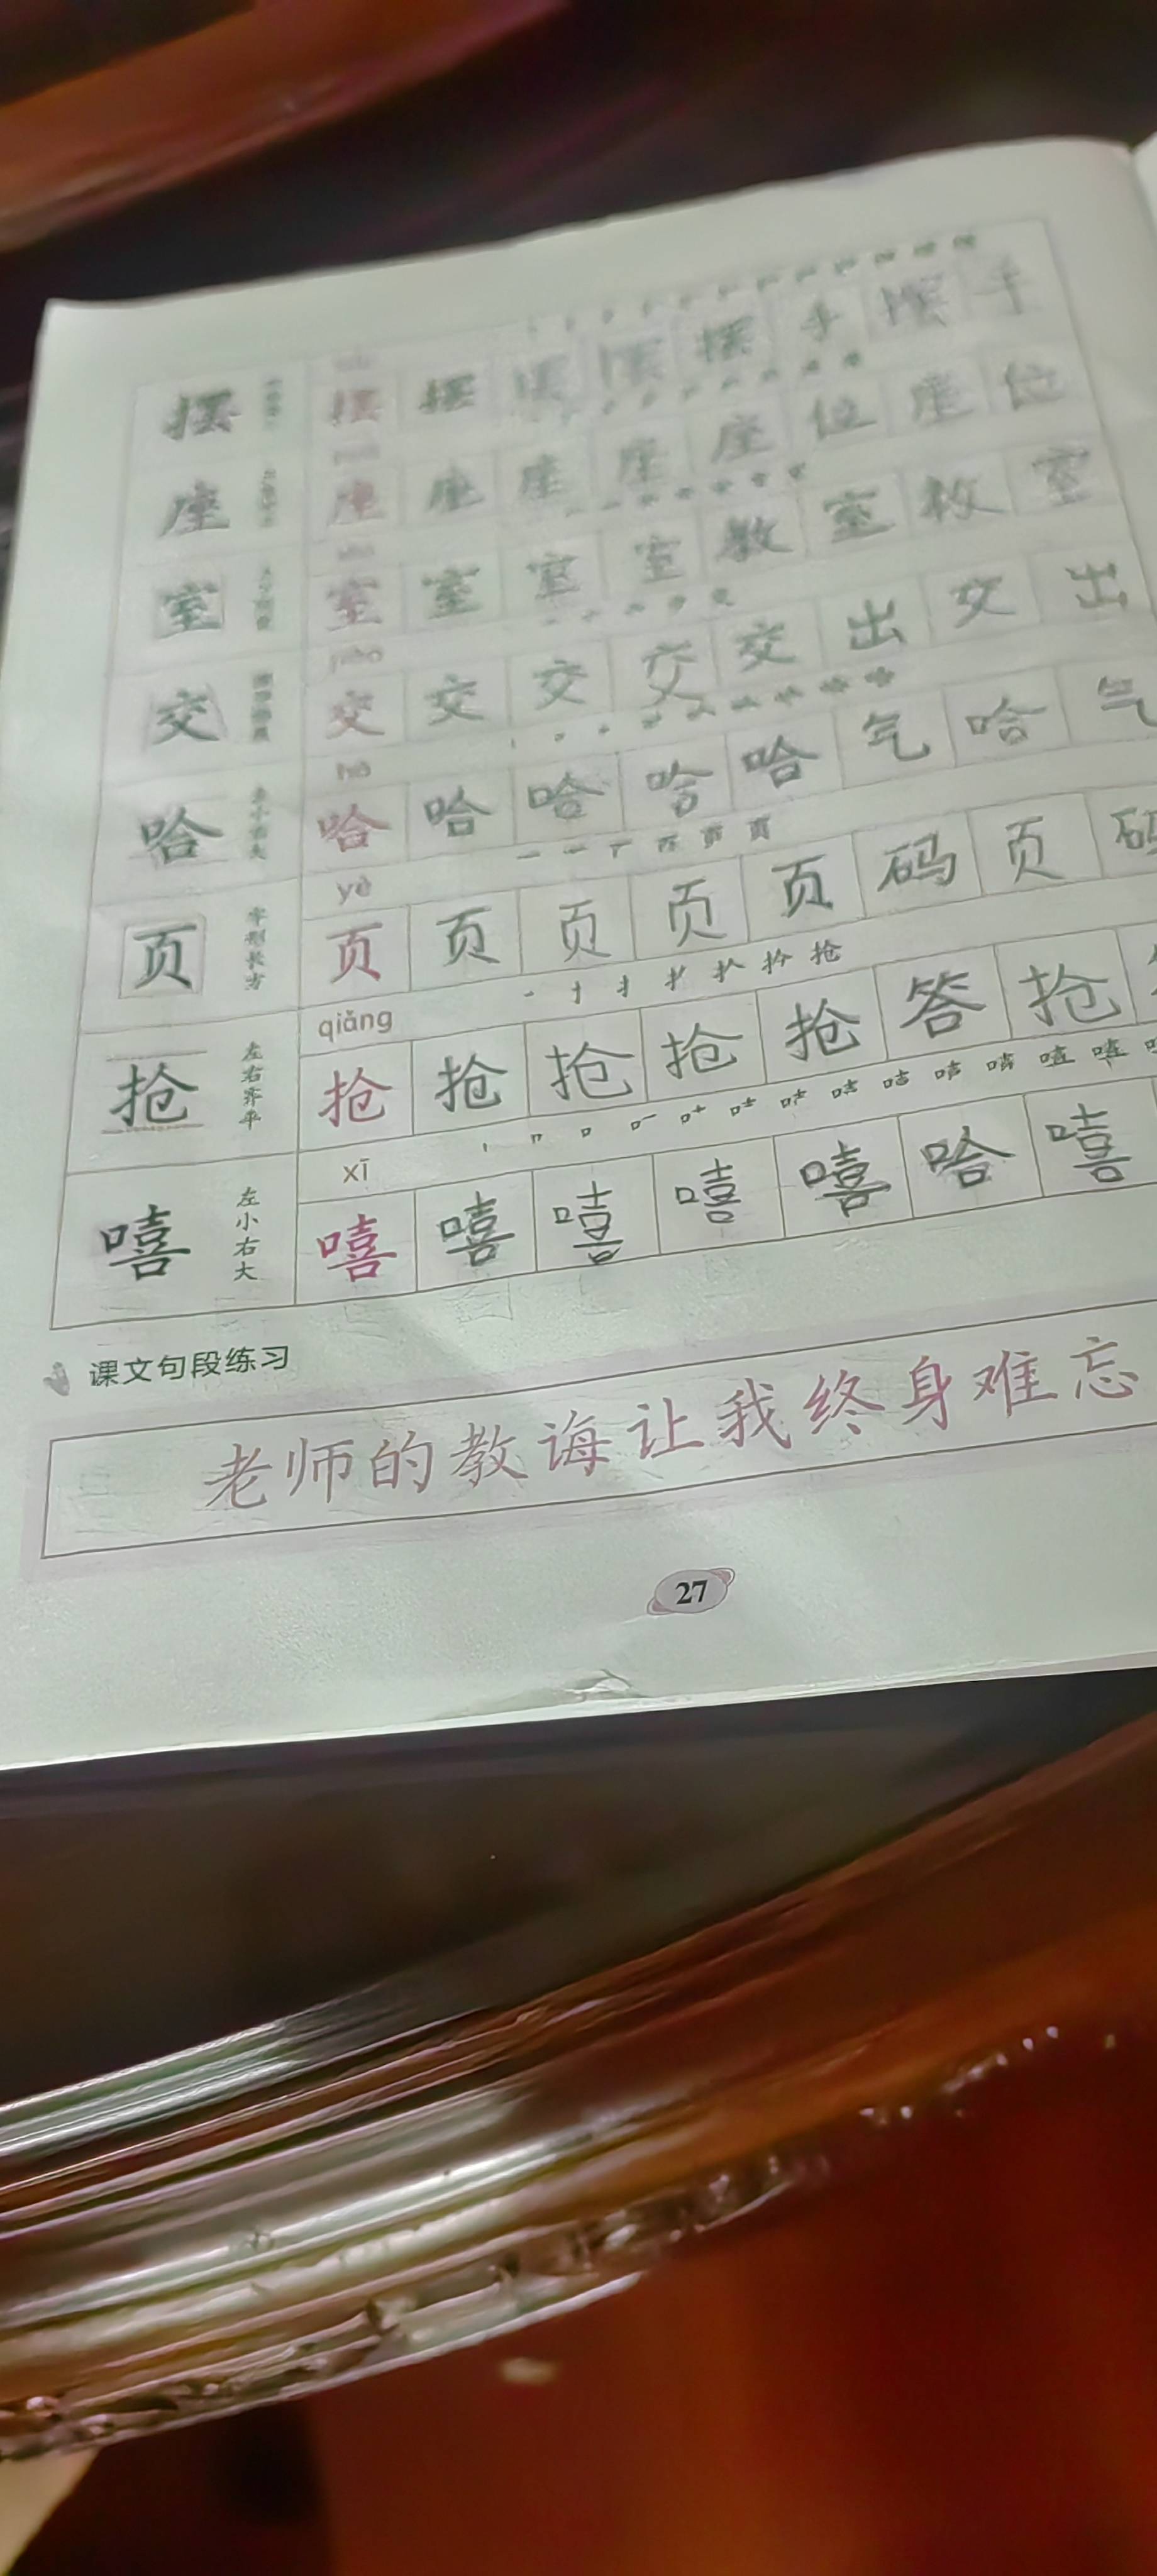 摆 摆 摆 摆 摆 摆 手 摆 手
座 座 座 座 座 座 位 座 位
室 室 室 室 室 教 室 教 室
jiāo
交 交 交 交 交 交 出 交 出
hā
哈 哈 哈 哈 哈 哈 气 哈 气
yè
页 字形长方 页 页 页 页 页 码 页 码
qiǎng
抢 左右齐平 抢 抢 抢 抢 抢 答 抢
xī
嘻 左小右大 嘻 嘻 嘻 嘻 嘻 哈 嘻
课文句段练习
老师的教诲让我终身难忘
27